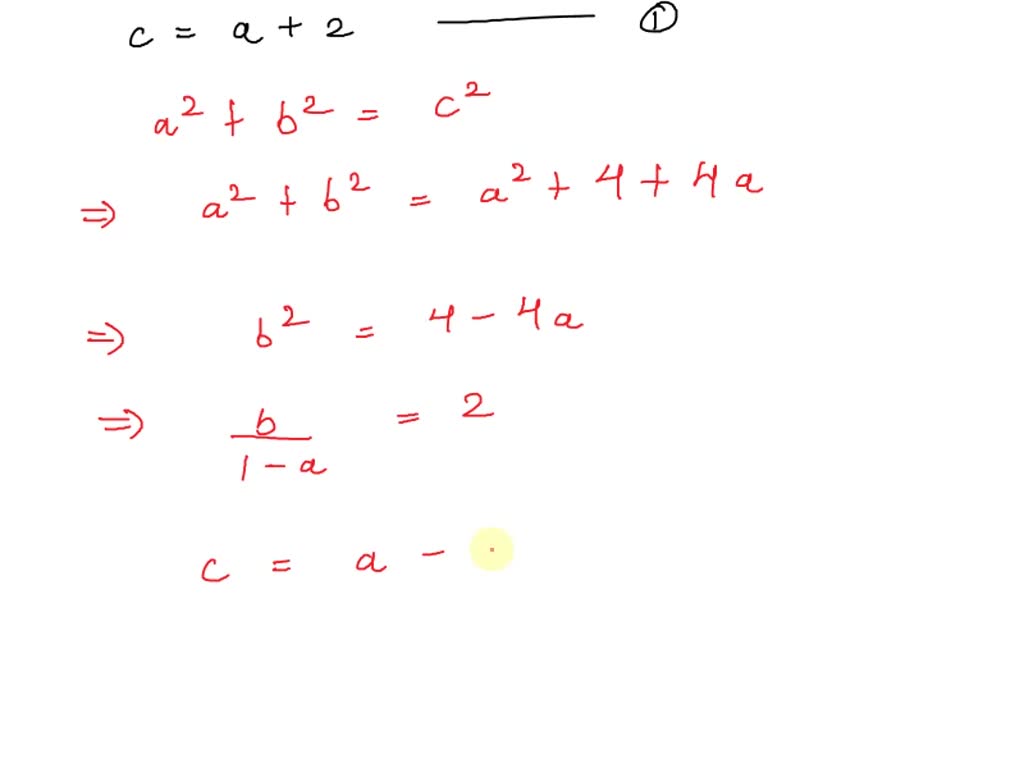 c = a + 2 ——— ①
a² + b² = c²
⇒ a² + b² = a² + 4 + 4a
⇒ b² = 4 - 4a
⇒ b/(1 - a) = 2
c = a -